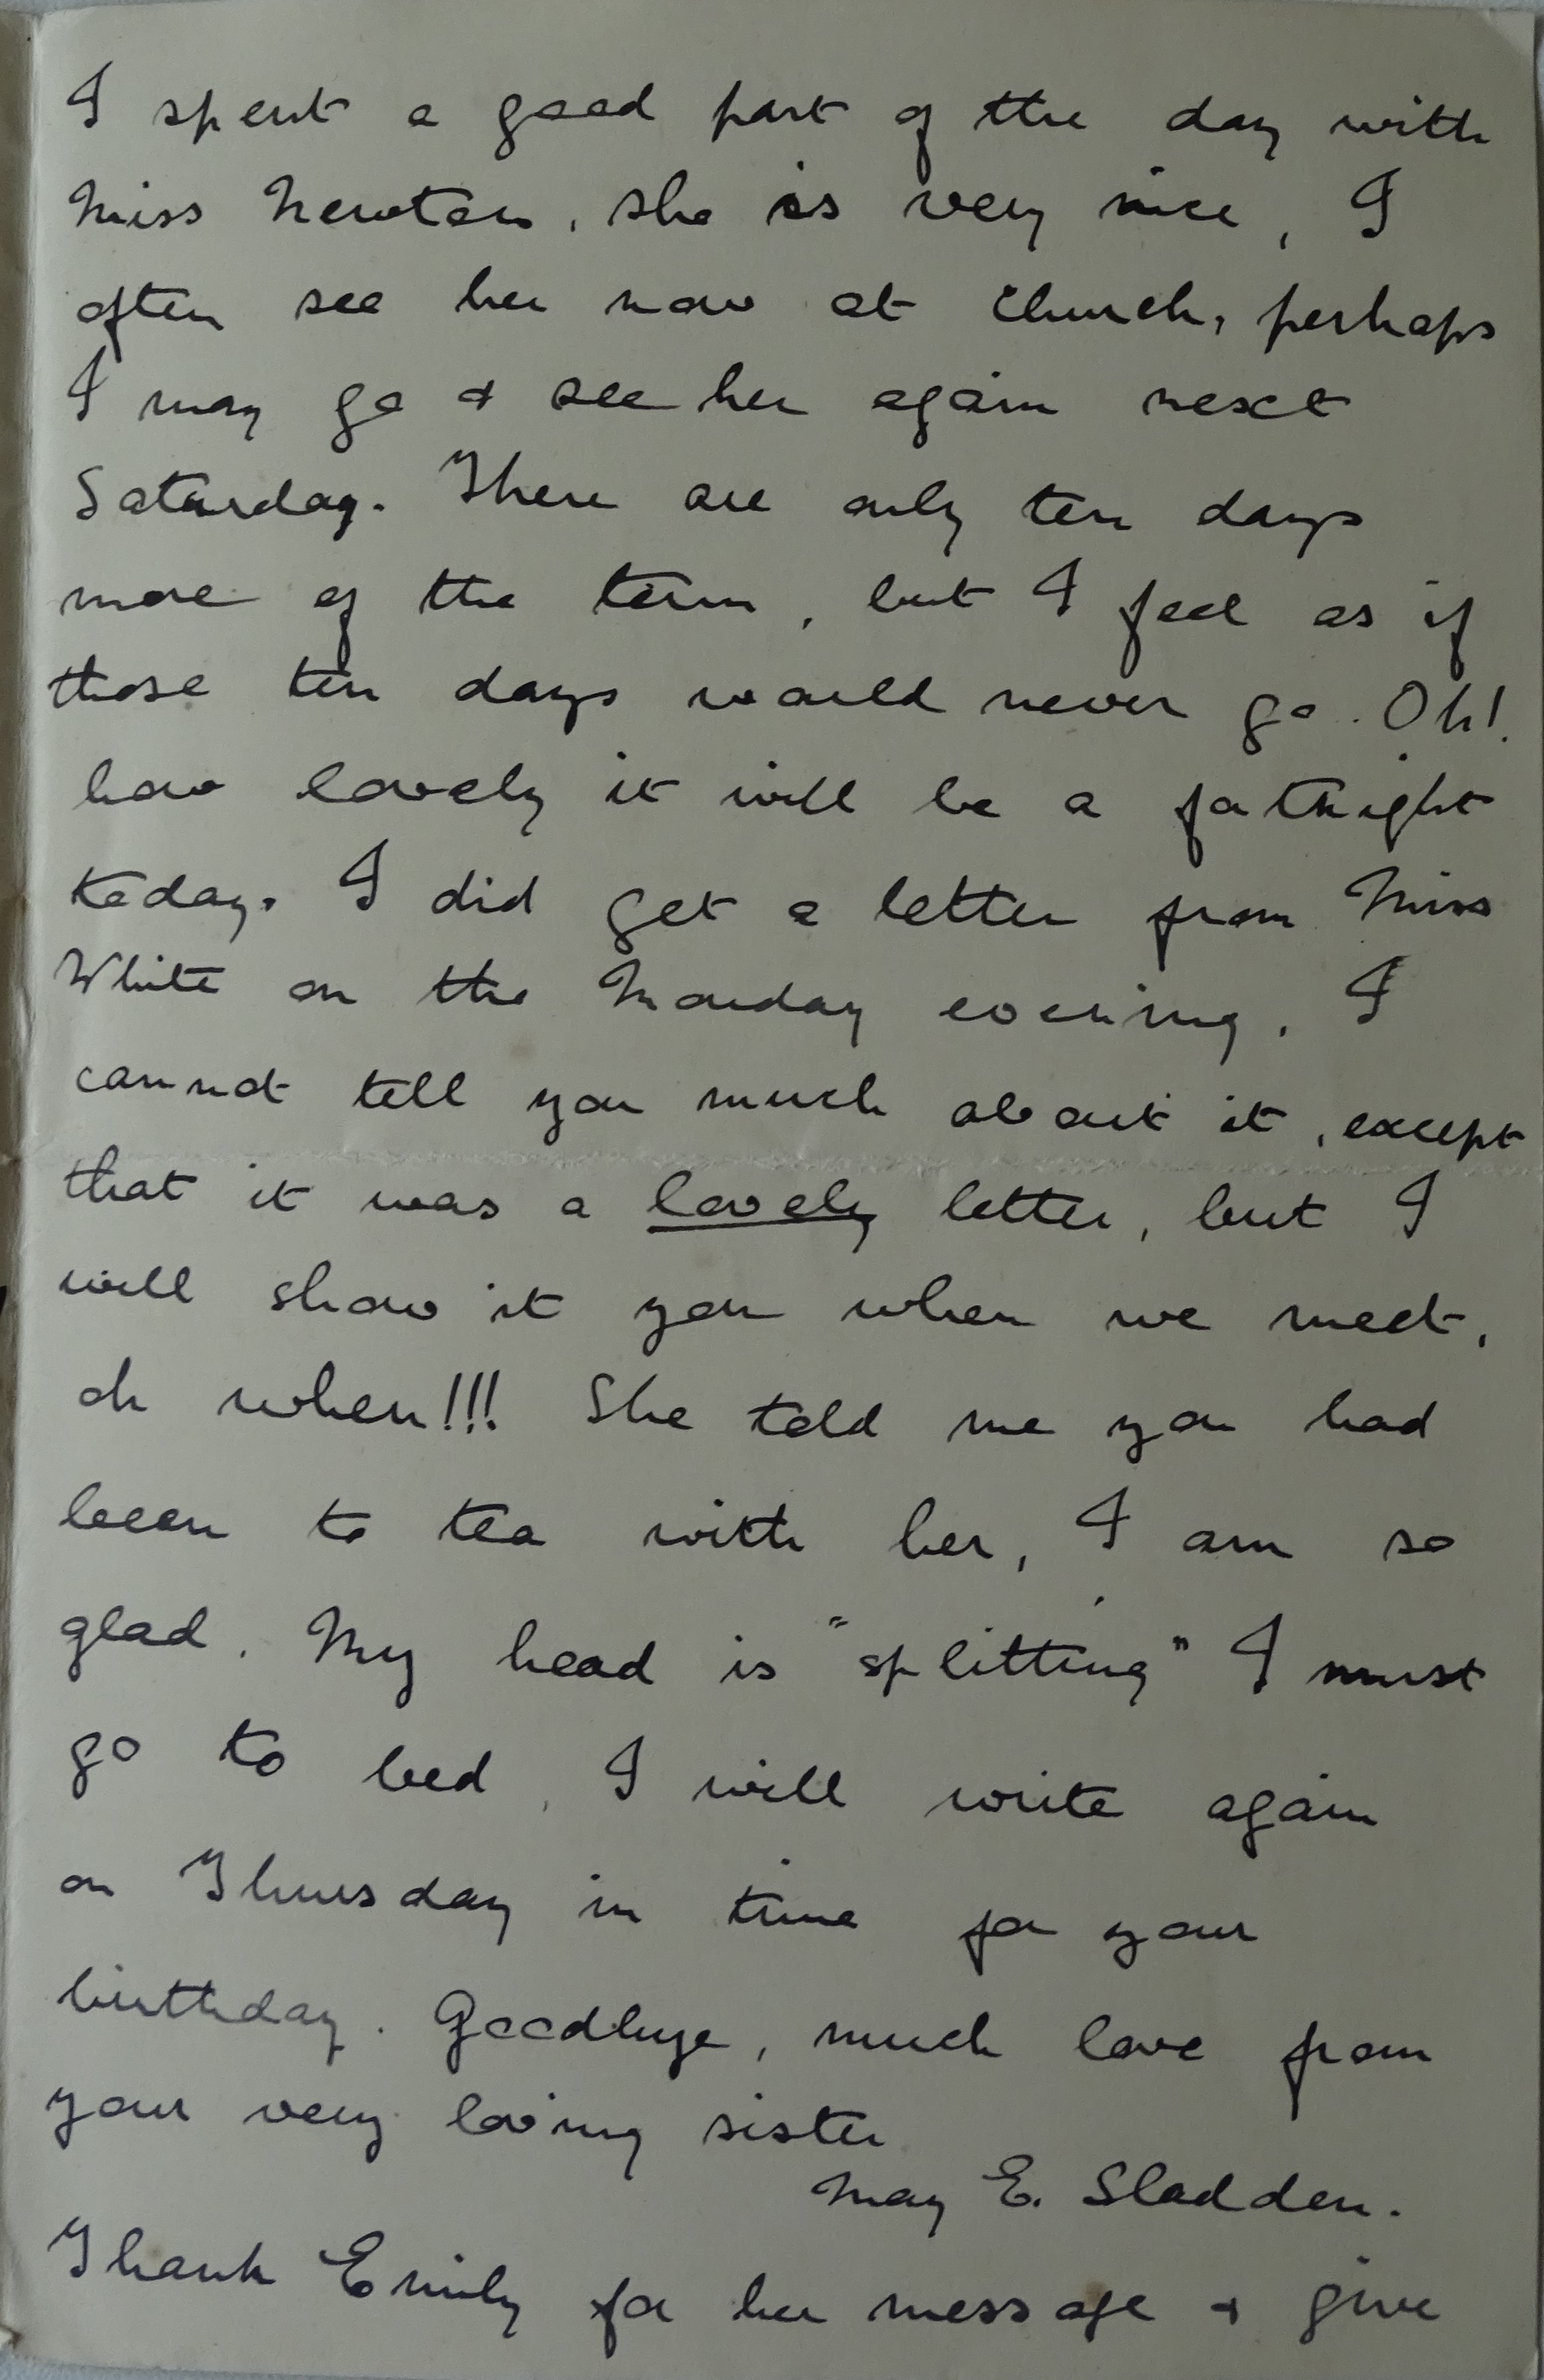 I spent a good part of the day with
Miss Newton, she is very nice, I
often see her now at church, perhaps
I may go & see her again next
Saturday. There are only ten days
more of the term, but I feel as if
those ten days would never go. Oh!
how lovely it will be a fortnight
today. I did get a letter from Miss
White on the Monday evening. I
cannot tell you much about it, except
that it was a lovely letter, but I
will show it you when we meet,
oh when!!! She told me you had
been to tea with her, I am so
glad. My head is "splitting" I must
go to bed, I will write again
on Thursday in time for your
birthday. Goodbye, much love from
your very loving sister
May E. Sladden.
Thank Emily for her message & give